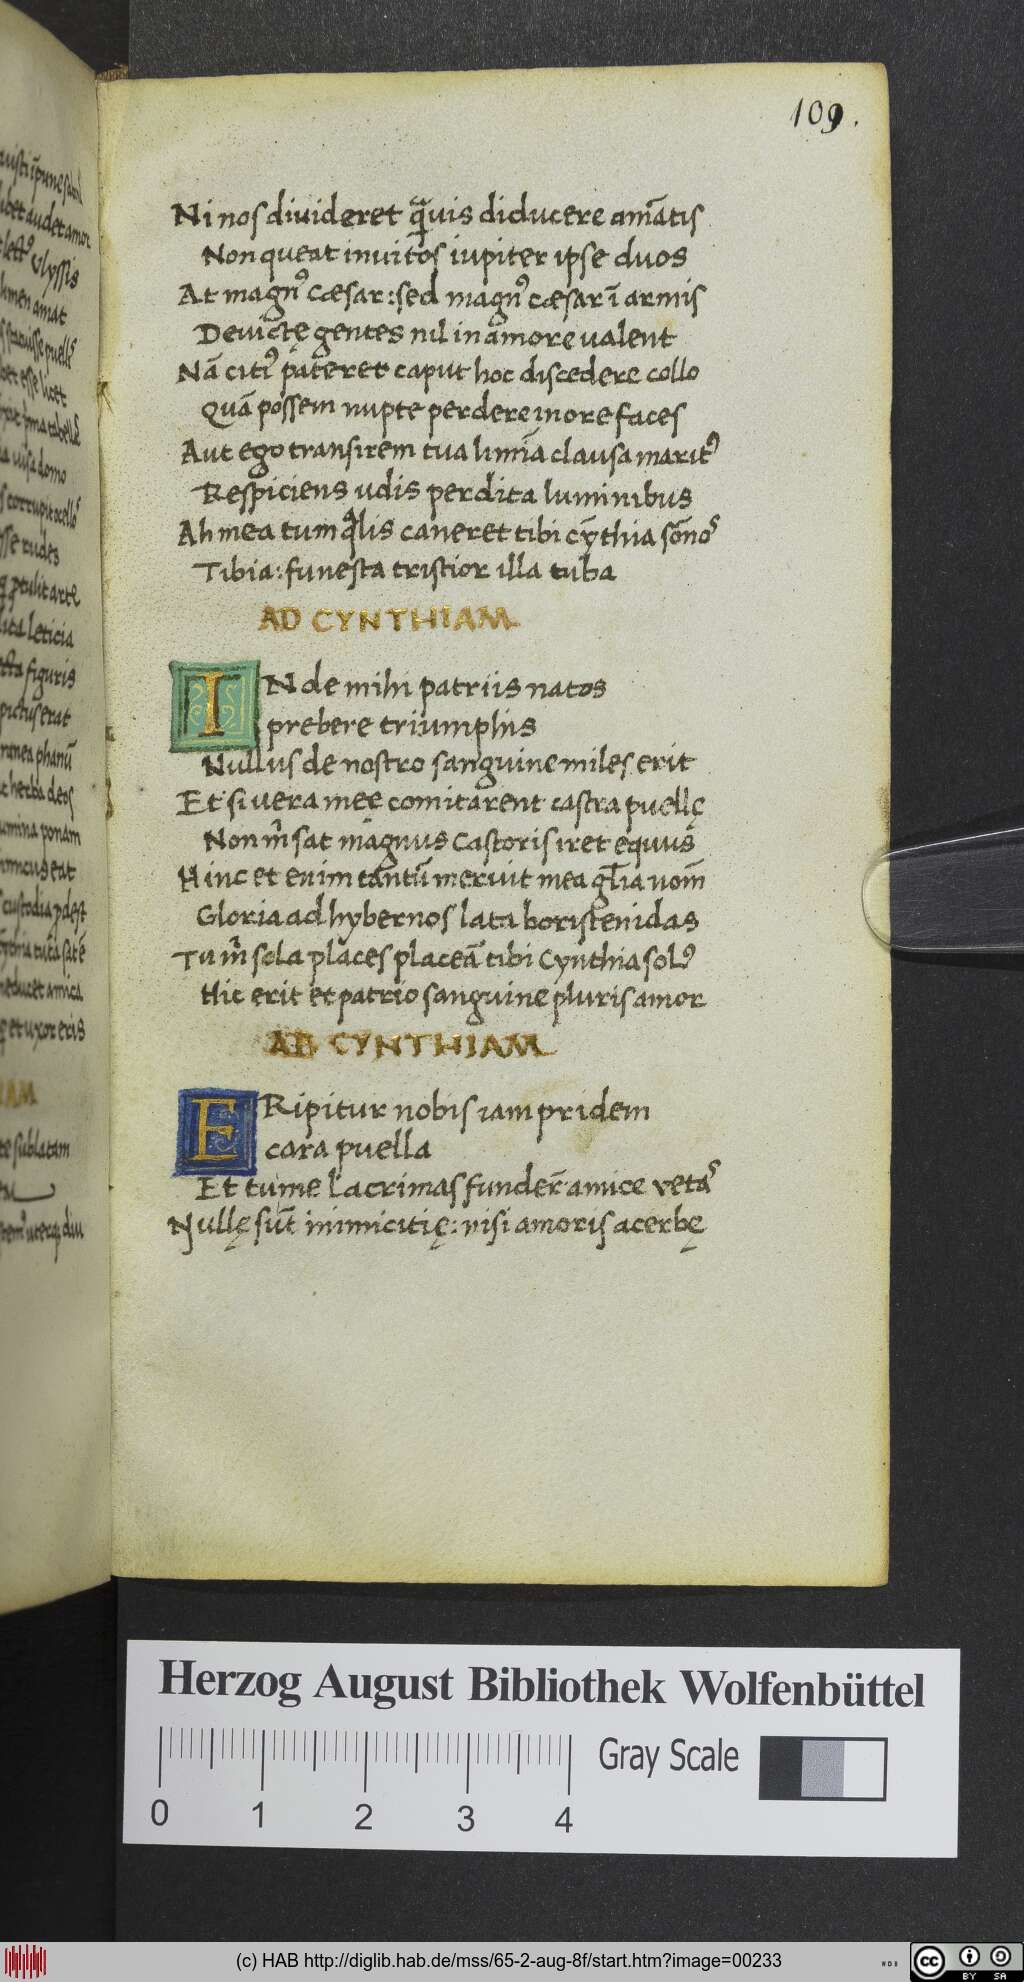 109.
Ni nos diuideret q̃uis diducere amãtis
Non queat inuitos iupiter ipse duos
At magnꝰ cæsar: sed magnꝰ cæsar ĩ armis
Deuictę gentes nil in amore ualent
Nã citiꝰ pateret caput hoc discedere collo
Quã possem nupte perdere more faces
Aut ego transirem tua limĩa clausa maritꝰ
Respiciens udis perdita luminibus
Ah mea tum q̃lis caneret tibi cynthia sõnoˢ
Tibia: funesta tristior illa tuba
AD CYNTHIAM
INde mihi patriis natos
prebere triumphis
Nullus de nostro sanguine miles erit
Et si uera meę comitarent castra puellę
Non m̃ sat magnus Castoris iret equus
Hinc et enim tantũ meruit mea gl̃ia nom̃
Gloria ad hybernos lata boristenidas
Tu m̃ sola places placeã tibi Cynthia solꝰ
Hic erit et patrio sanguine pluris amor
AB CYNTHIAM
ERipitur nobis iam pridem
cara puella
Et tu me lacrimas funder̃ amice vetaˢ
Nullę sũt inimicitię: nisi amoris acerbę
Herzog August Bibliothek Wolfenbüttel
Gray Scale
0 1 2 3 4
(c) HAB http://diglib.hab.de/mss/65-2-aug-8f/start.htm?image=00233
cc BY SA